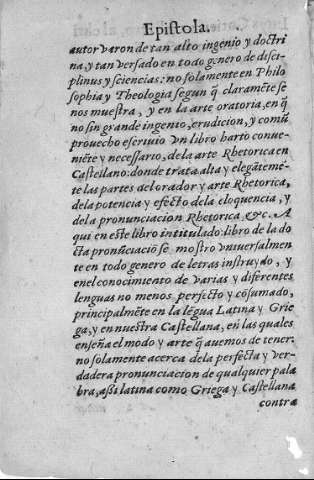 Epistola.
autor varon de tan alto ingenio y doctri
na, y tan versado en todo genero de disci-
plinus y sciencias: no solamente en Philo
sophia y Theologia segun q̃ claramẽte se
nos muestra, y en la arte oratoria, en q̃
no sin grande ingenio, erudicion, y comũ
prouecho escriuio vn libro harto conue-
niẽte y necessario, de la arte Rhetorica en
Castellano: donde trata alta y elegãtemẽ-
te las partes del orador y arte Rhetorica,
de la potencia y efecto de la eloquencia, y
de la pronunciacion Rhetorica &c. A
qui en este libro intitulado: libro de la do
cta pronũciaciõ se mostro vniuersalmen
te en todo genero de letras instruydo, y
en el conocimiento de varias y diferentes
lenguas no menos perfecto y cõsumado,
principalmẽte en la lẽgua Latina y Grie
ga, y en nuestra Castellana, en las quales
enseña el modo y arte q̃ auemos de tener:
no solamente acerca de la perfecta y ver-
dadera pronunciacion de qualquier pala
bra, assi latina como Griega y Castellana
contra